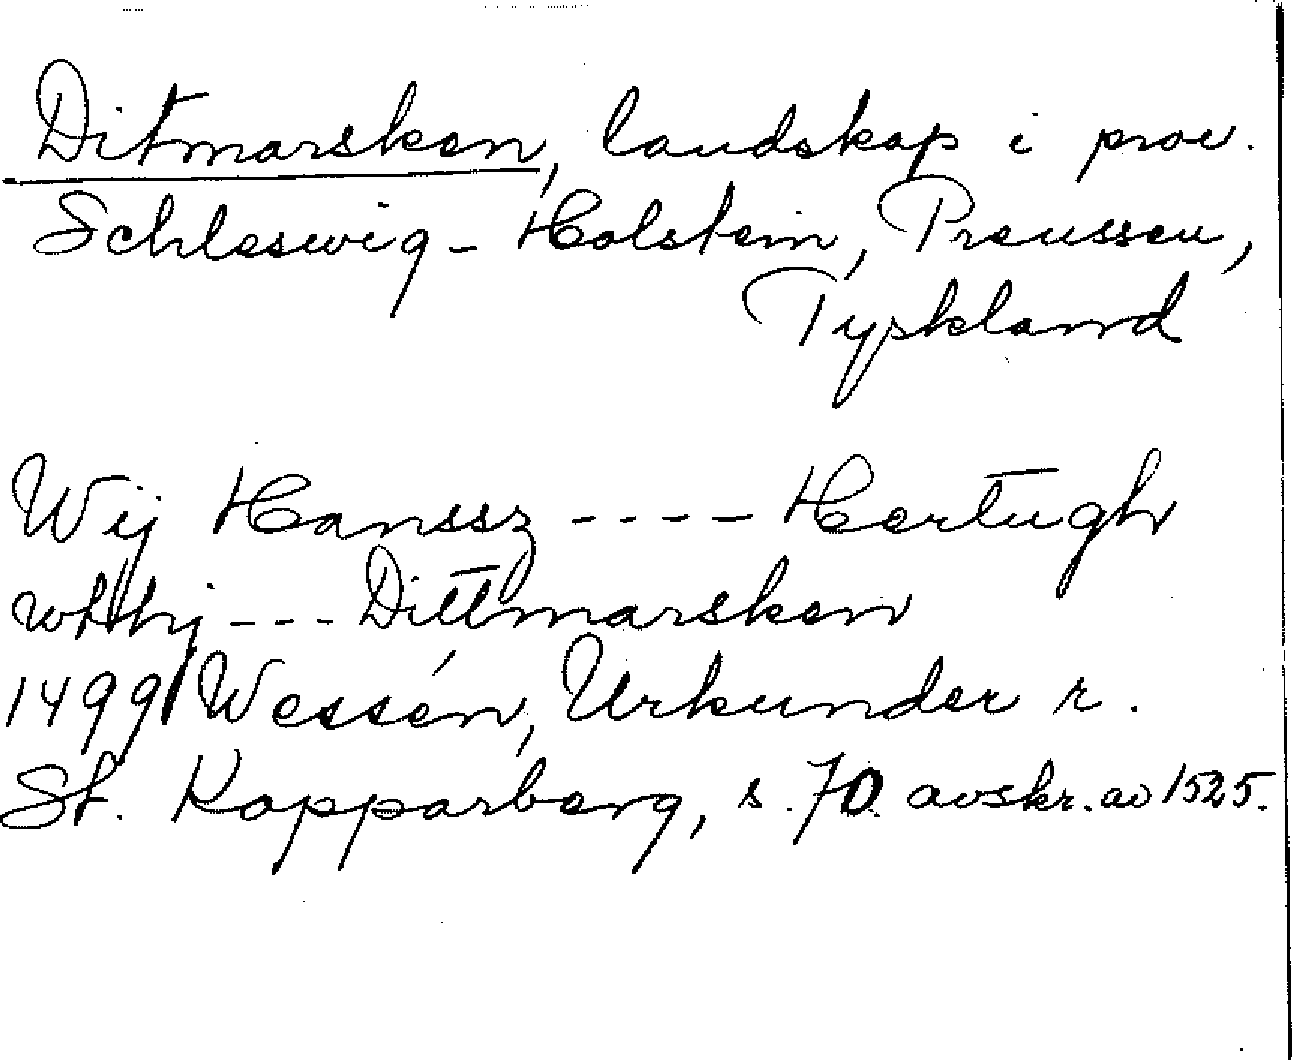 Ditmarsken, landskap i prov.
Schleswig - Holstein, Preussen,
Tyskland
Wij Hanssz ---- Hertugh
vththj --- Dittmarsken
1499 Wessén, Urkunder r.
St. Kopparberg, s. 70. avskr. av 1525.